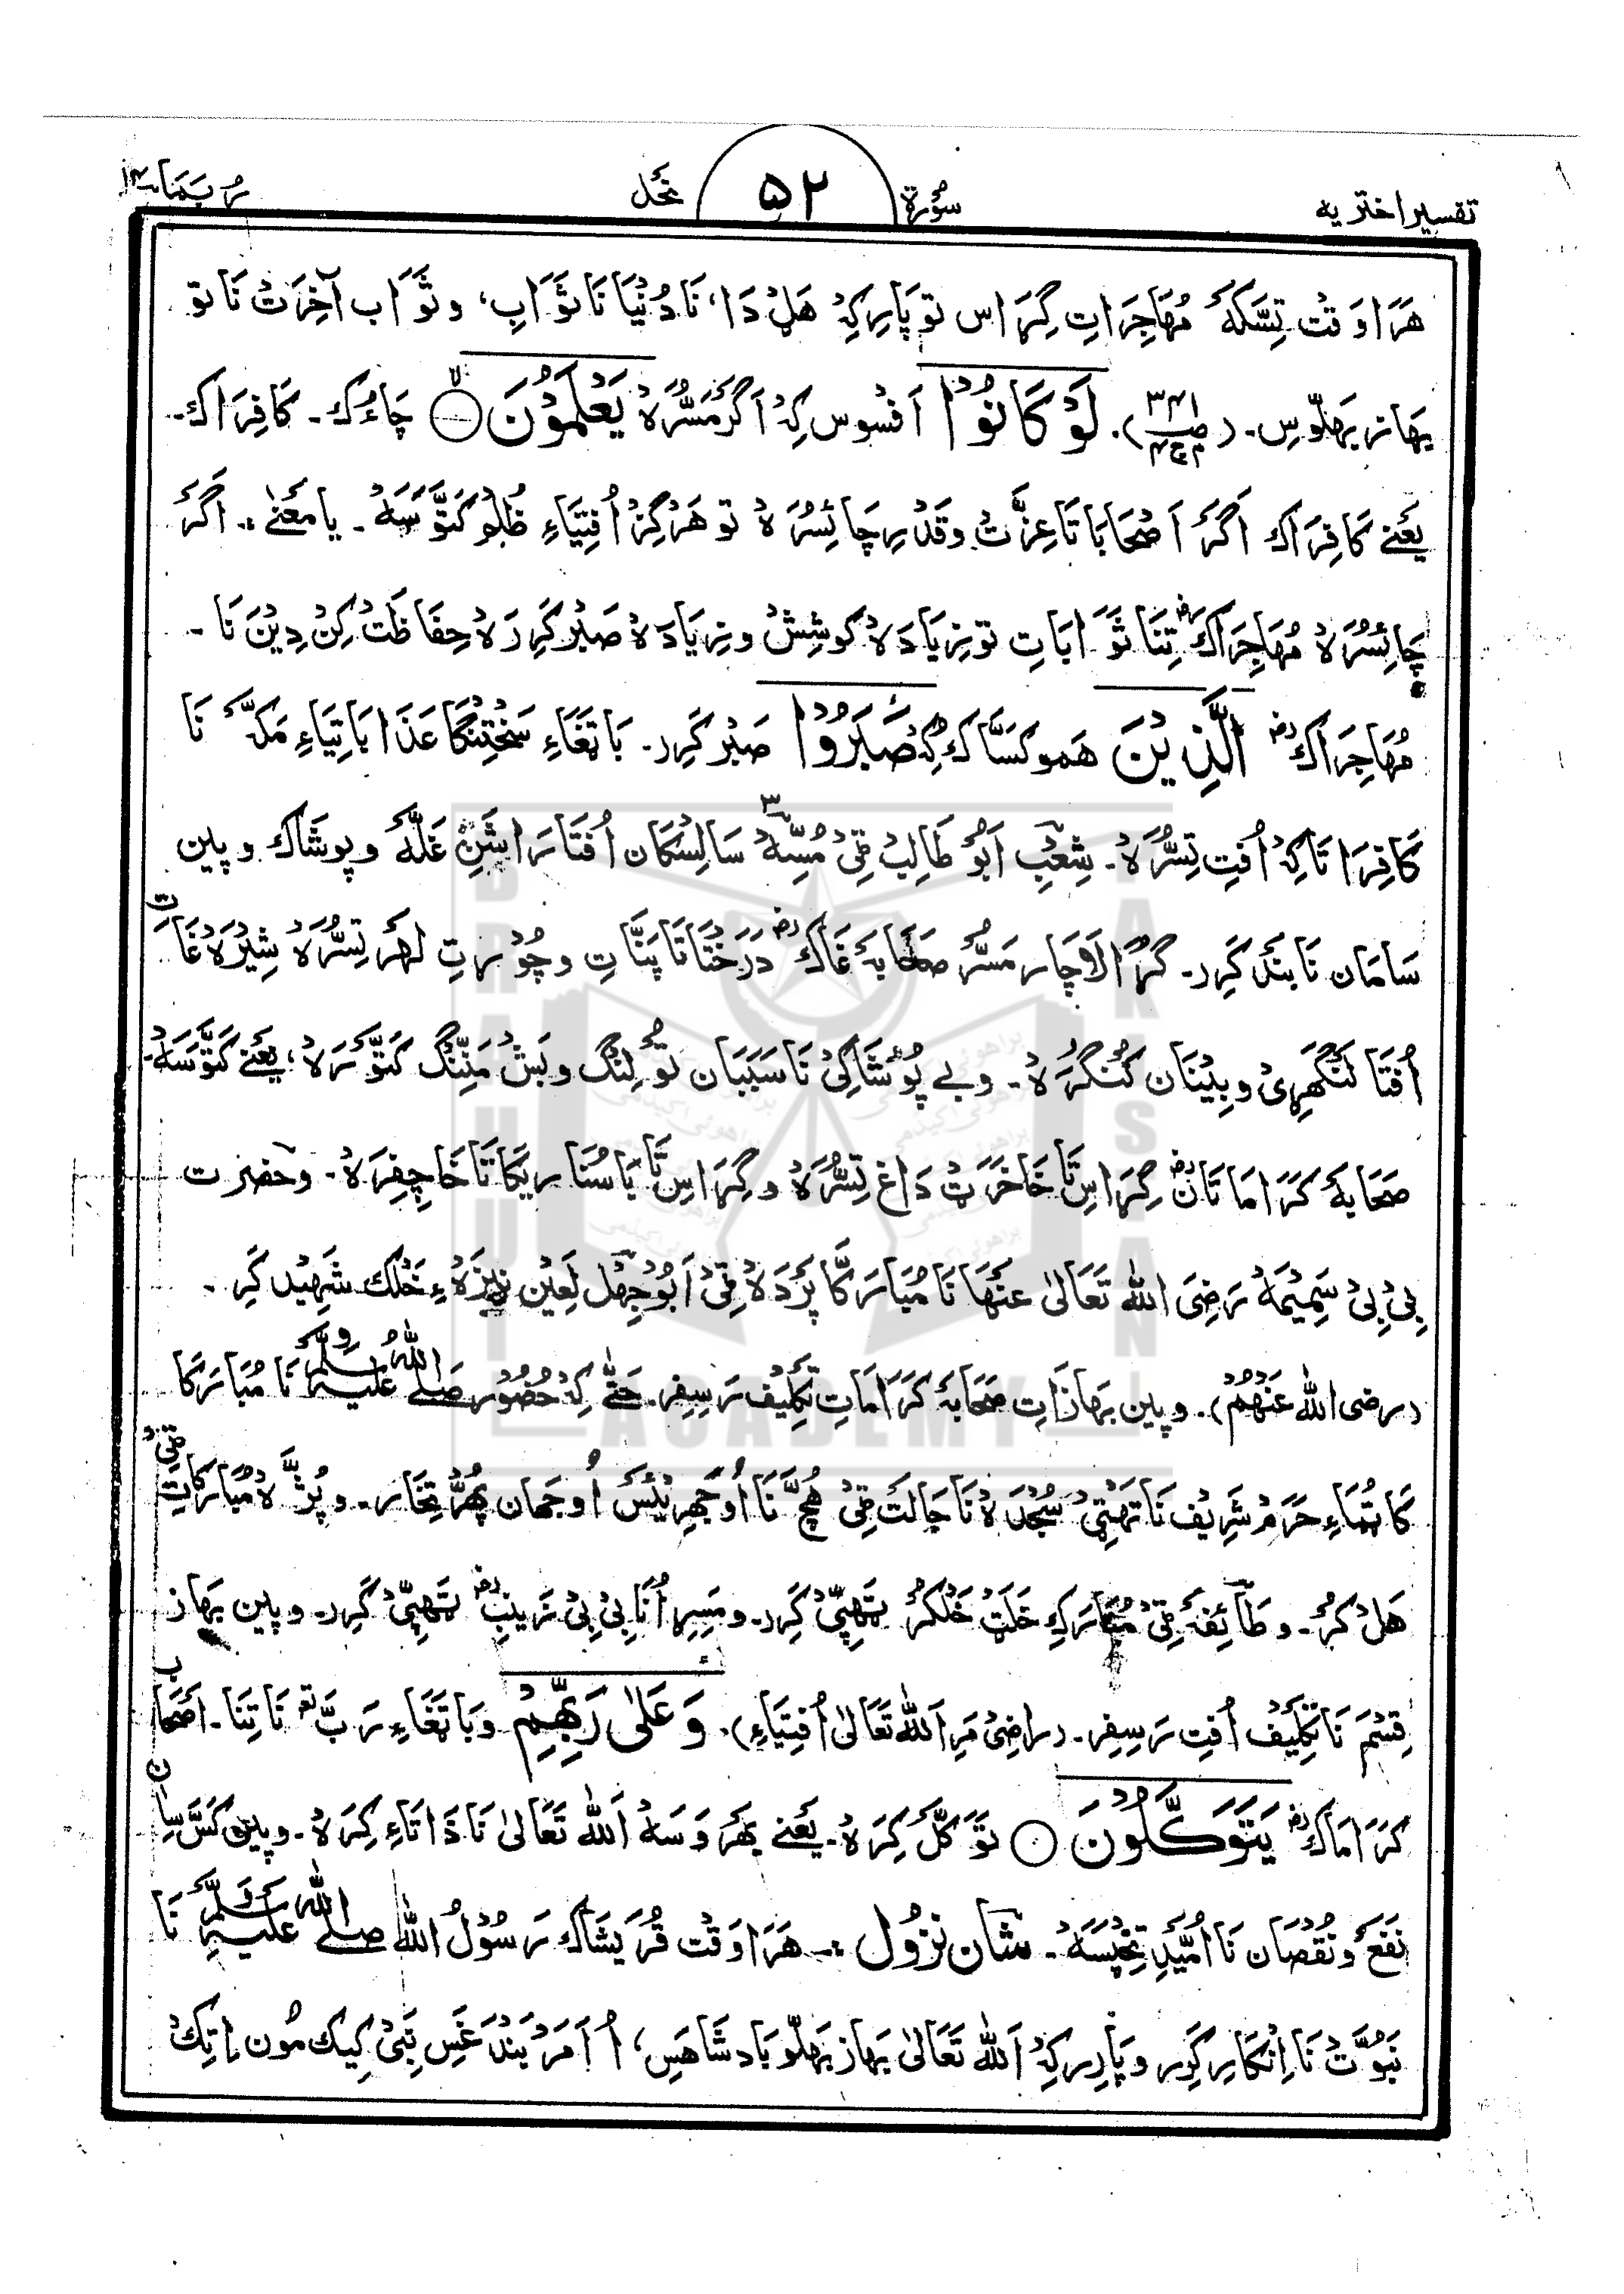 تفسیر اختریه سُورۃ ۵۲ نحَل رُبَمَا ۱۴
هَرَا وَقتْ تِسَّکَہ مُهَاجِرَاتِ گِرَاس تو پَارِر کِہ هَلْ دَا، نَا دُنْیَا نَا ثوَابِ، وثوَاب آخِرَتْ نَا تو
بهَاز بَهلّوسِ۔ لَوْ كَانُوْا اَفسُوس کِہ اَگَر مَسُّرَہ يَعْلَمُوْنَ ۝ چَاءُک۔ کَافِرَاک۔
یَعنے کَافِرَاک اَگَر اَصْحَابَا تَا عِزَّتْ وقَدْرِ چَائِسُّرَہ تو هَرگِز اُفِتیَاءِ ظُلم کَتوَّسَہ۔ یا مَعنےٰ :۔ اَگَر
چَائِسُّرَہ مُهَاجِرَاکؓ تِنَا ثوَابَاتِ تو زیَادَہ کوشِشْ وزِیَادَہ صَبْر کَرِرَہ حِفَاظَتْ کِنْ دِیْنَ نَا۔
مُهَاجِرَاکؓ الَّذِيْنَ هَمو کَسَّاک کِہ صَبَرُوْا صَبْر کَرِر۔ بَا تَغَاءِ سَخْتِنگَا عَذَابَاتِیَاءِ مَکَّہ نَا
کَافِرَاتَا کِہ اُفتِ تِسُّرَہ۔ شِعْبِ اَبُو طَالِبْ ٹِیْ مُسِّہ۳ سَالِسْکَان اُفتَا رَاشَنِ غَلَّہ وپوشَاک وپین
سَامَان نَا بَند کَرِر۔ گُڑَا لَاچَار مَسُّر صَحَابَہ غَاکؓ دَرَخْتَاتَا پَنَّاتِ وچُوْزتِ لَهَر تِسُّرَہ شِیْرَہ غَاتَ
اُفتَا لَنگَهرِی وبِیْنَان کُنگرَہ۔ وبے پُوشَاکِیْ نَا سَبَبَان تُوْلِنگ وبَشْ مَنِّنگ کَتوَّرَہ، یَعنے کَتوَّسَہ۔
صَحَابَہ کَرَامَاتَانؓ گِرَاسِ تَا خَاخَرَتْ دَاغ تِسُّرَہ وگِرَاسِ تَا بَاسُنَا رِیکَاتَا خَاچِفِرَہ۔ وحضرت
بِی بِی سِمِیْمَہ رَضِیَ اللّٰہ تَعَالیٰ عَنْهَا نَا مُبَارَکَّا پَرْدَہ ٹِیْ اَبُوجِهْل لَعِیْن نِیزَہءِ خَلْک شَهِیْد کَرِ۔
(رضی اللّٰہ عَنْهُمْ)۔ وپین بهَازَاتِ صَحَابَہ کَرَامَاتِ تَکلِیْف رَسِفِر۔ حَتّٰی کِہ حُضُوْر صَلے اللّٰہُ عَلَیْہِ وَسَلَّم نَا مُبَارَکَا
کَاٹُمَاءِ حَرَمْ شَرِیْف نَا تهَٹِیْ سُجْدَہ نَا حَالَتْ ٹِیْ هُچَّ نَا اُوجهرِ یَئِسَ اُوجمَان پُهرُّ تِخَار۔ وپُرْٹَّہ مُبَارَکَاتِ ٹِیْ
هَلْ کُر۔ وطَآئِفَہ ٹِیْ مُبَارَکِ خَلَتْ خَلکُر تَهپِّیْ کَرِر۔ ومَسِرِ اُنَا بِی بِی زَینَبِؓ تَهپِّیْ کَرِر۔ وپین بهَاز
قِسْم نَا تَکلِیْف اُفتِ رَسِفِر۔ (رَاضِیْ مَرِ اَللّٰہ تَعَالیٰ اُفتِیَاءِ)۔ وَ عَلٰى رَبِّهِمْ وبَا تَغَاءِ رَبَّ نَا تِنَا۔ اَصْحَاب
کَرَامَاکؓ يَتَوَكَّلُوْنَ ۝ توَکَّلْ کِرَہ۔ یَعنے بَهرَوَسَہ اَللّٰہ تَعَالیٰ نَا ذَاتَاءِ کِرَہ۔ وپین کَسَّ سِیَان
نَفَعْ ونُقْصَان نَا اُمِّیْدِ تِخپسَہ۔ شَان نزُول :۔ هَرَا وَقتْ قُرَیشَاک رَسُوْلُ اللّٰہ صلے اللّٰہ عَلَیْہِ وَسَلَّم نَا
نَبُوَّتْ نَا اِنْکَار کَرِر وپَارِر کِہ اَللّٰہ تَعَالیٰ بهَاز بَهلّو بَادشَاهَسِ، اُ اَمَر بَندَغَسِ نَبِیْ کِیک مُون اِتِک